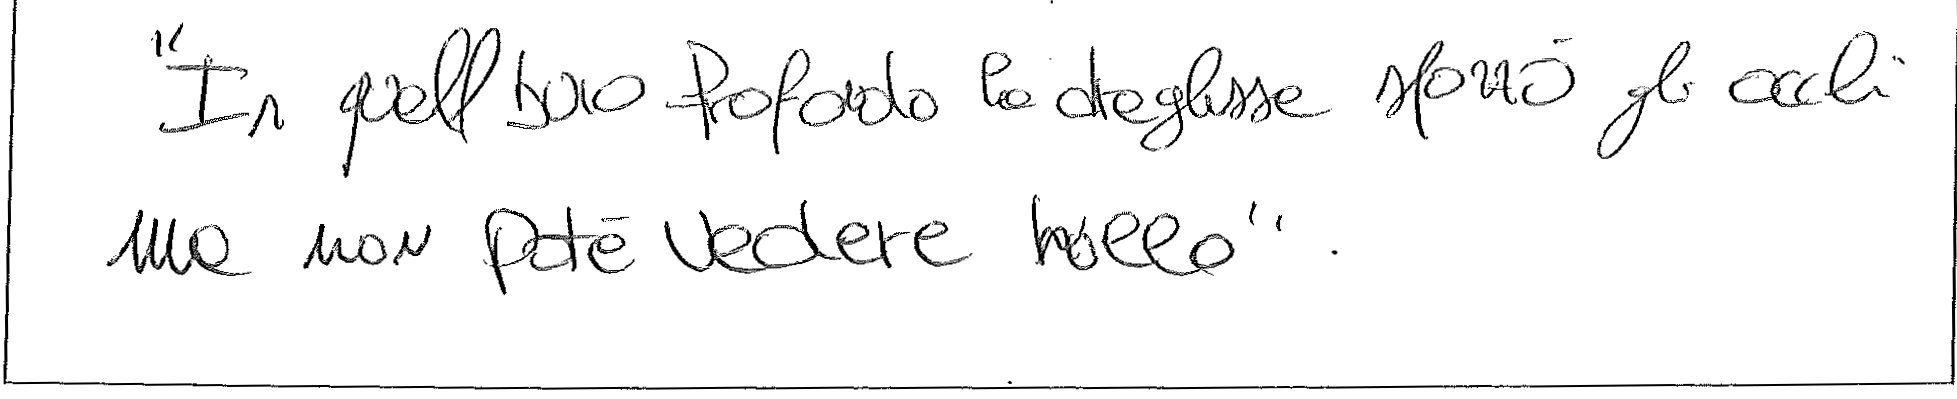 "In quell buio profondo la dieglisse sforzò gli occhi
ma non potè vedere nollo".